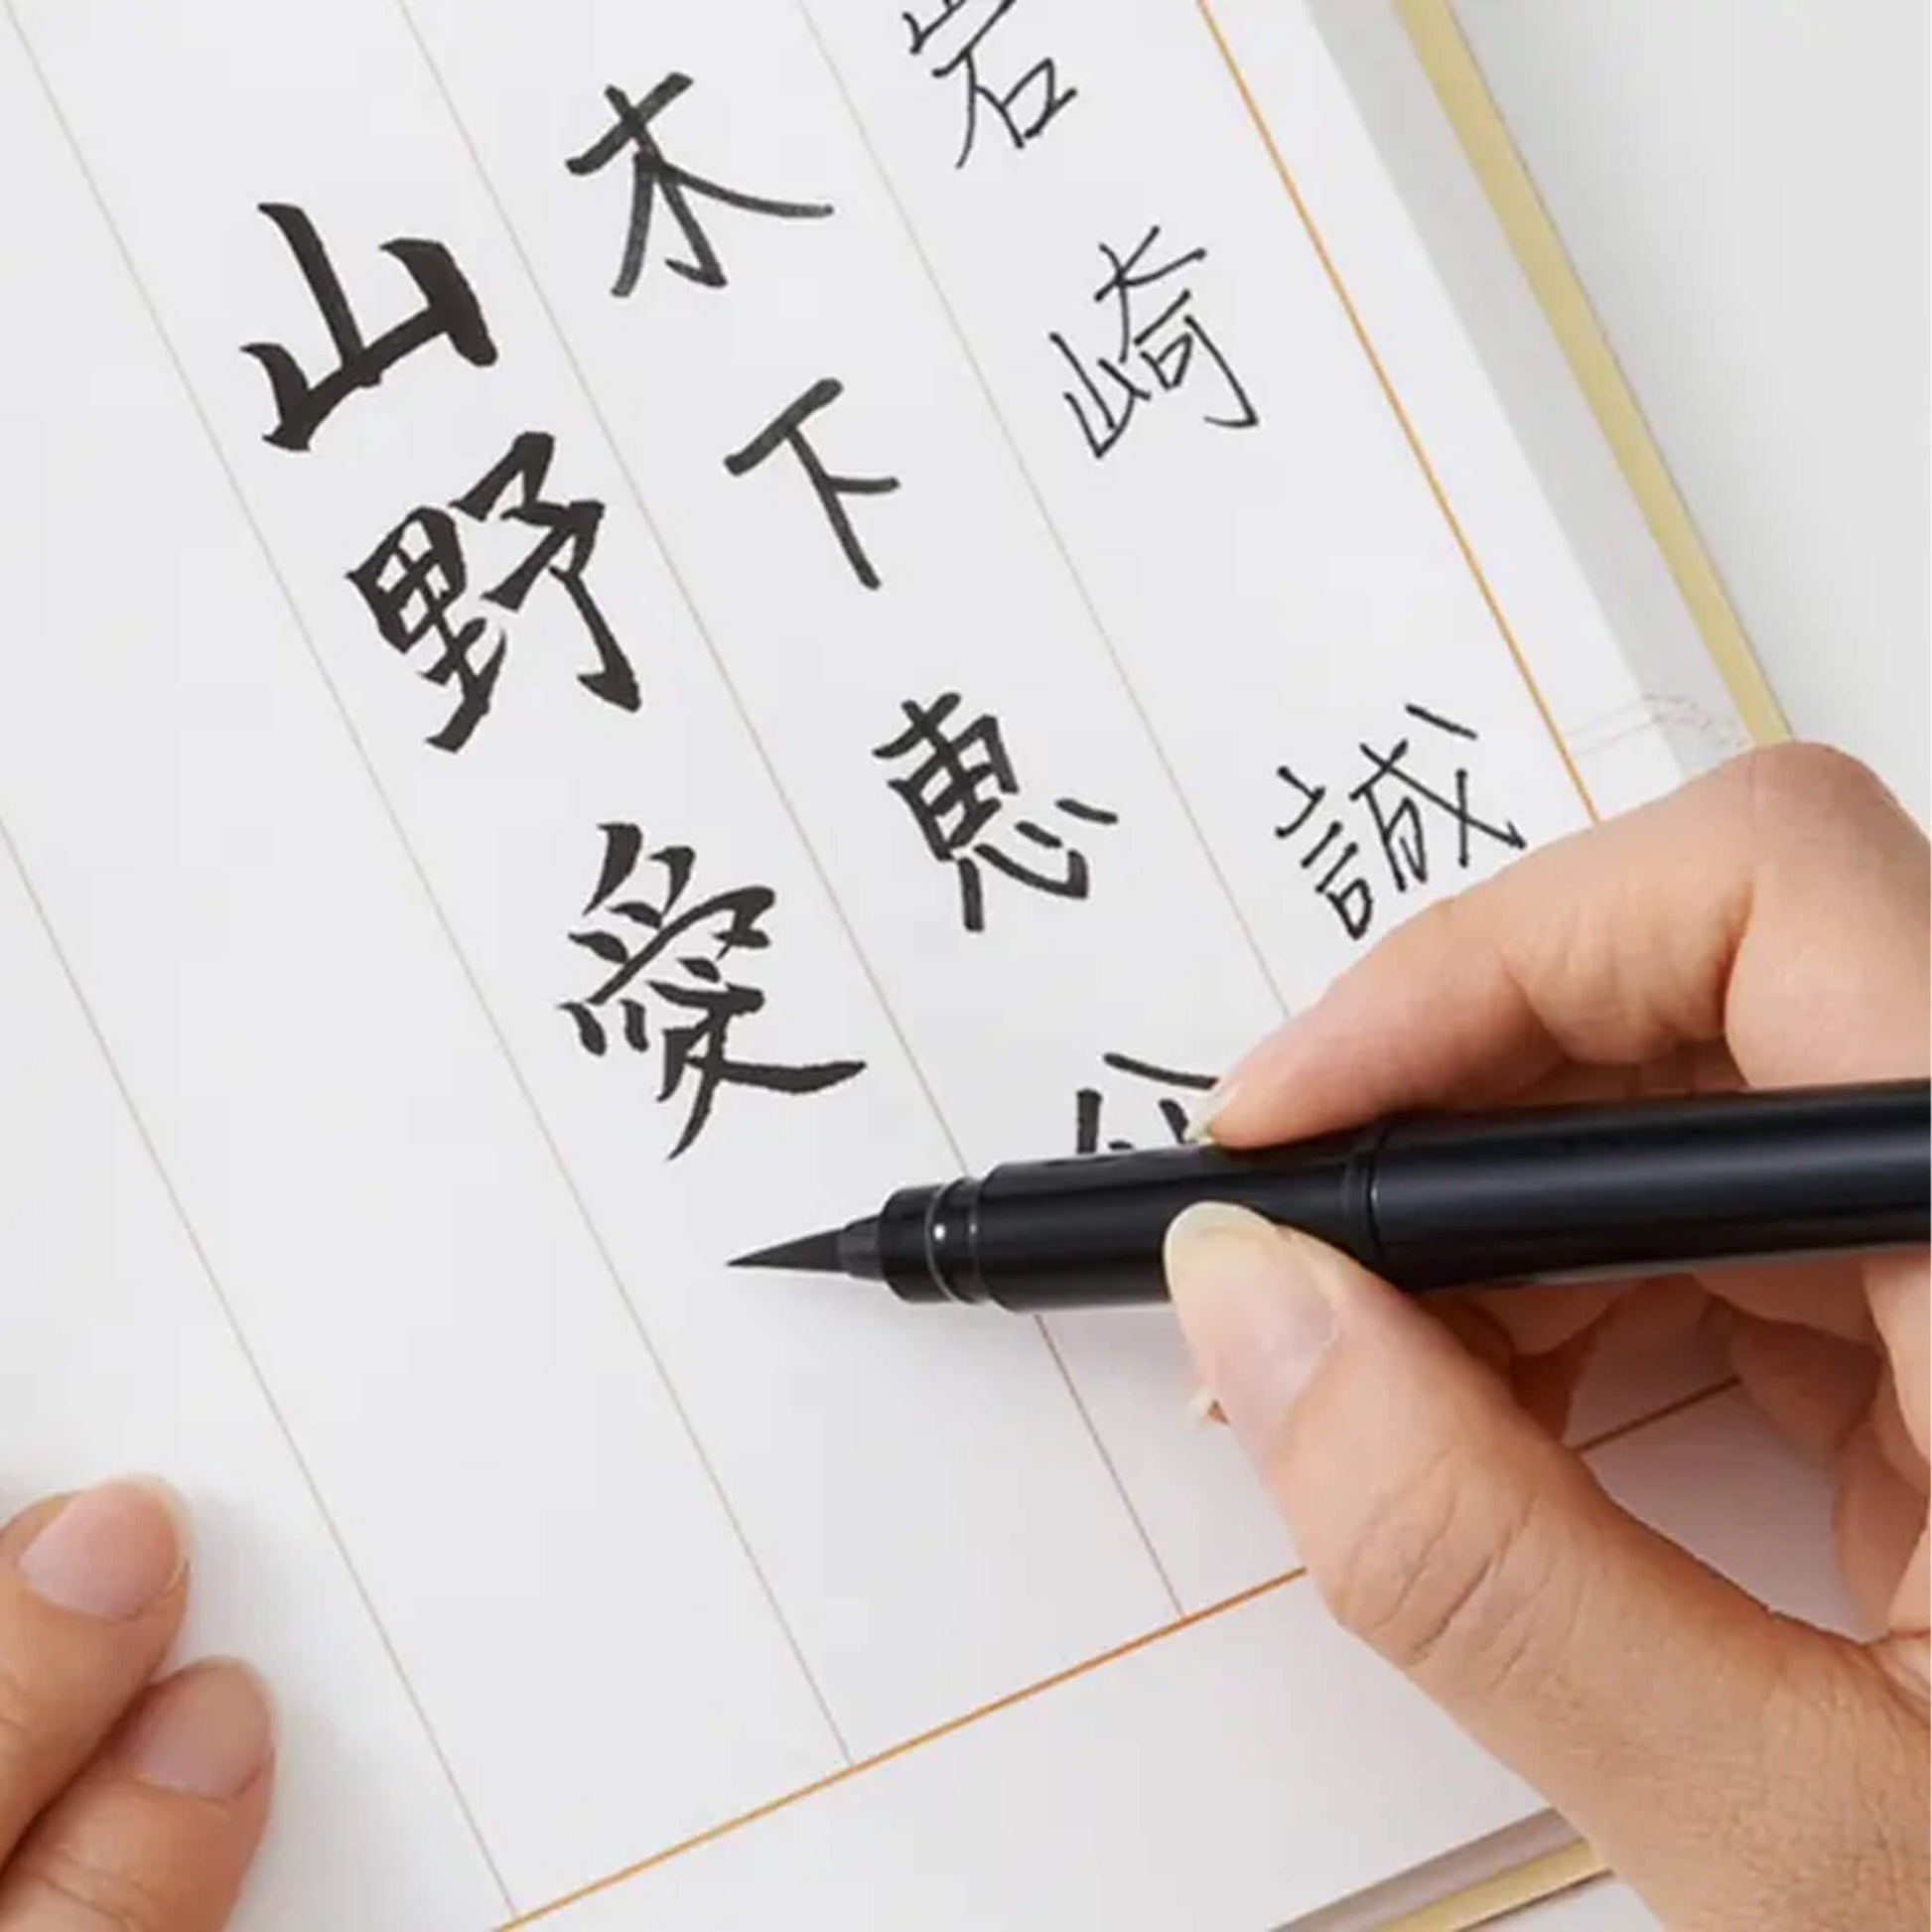 岩崎 誠
木下 恵
山野 愛